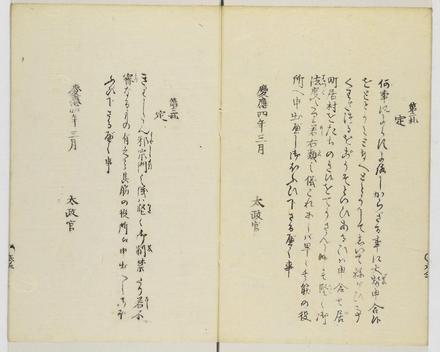 第二札
定
何事によらすよろしからざる事に大勢申合候
をととうととなへととうして志いて願ひ事
くわだつるをごうそといひあるひハ申合せ居
町居村をたちのき候をてうさんと申堅く御
法度たり若右類之儀これあらバ早々其筋の役
所へ申出べし御ほふび下さるべく事
慶應四年三月
太政官
第三札
定
きりしたん邪宗門之儀ハ堅く御制禁たり若不
審なるもの有之ハ其筋の役所へ申出べし御ほ
ふび下さるべく事
慶應四年三月
太政官